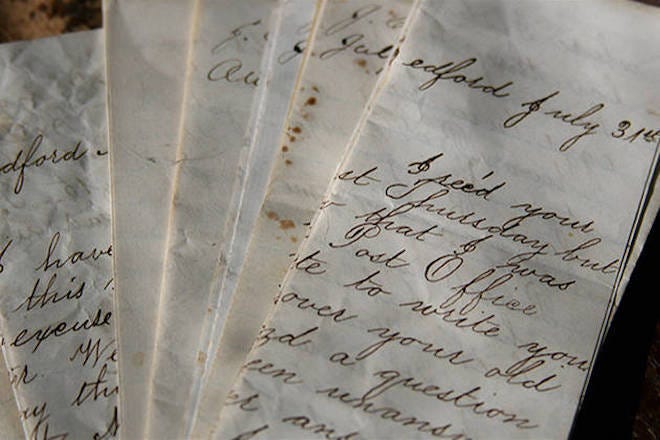 edford July 31st
I rec'd your
st Thursday but
that I was
Post Office
te to write you
over your old
d a question
een unans
er an
J.
Au
J. C
Jul
dford
I have
this
excuse
r. We
y th